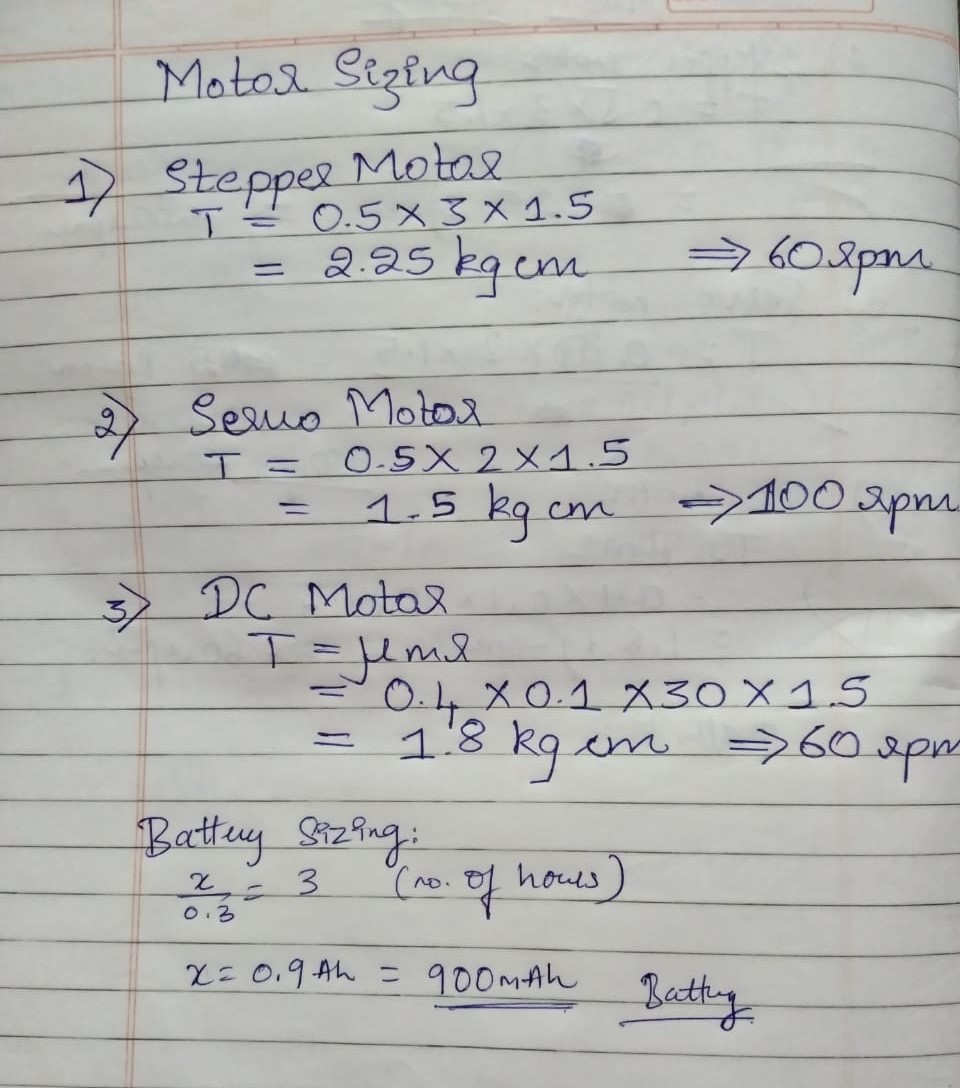 Motor Sizing
1) Stepper Motor
T = 0.5 × 3 × 1.5
= 2.25 kg cm ⇒ 60 rpm
2) Servo Motor
T = 0.5 × 2 × 1.5
= 1.5 kg cm ⇒ 100 rpm
3) DC Motor
T = μmr
= 0.4 × 0.1 × 30 × 1.5
= 1.8 kg cm ⇒ 60 rpm
Battery Sizing:
x/0.3 = 3 (no. of hours)
x = 0.9 Ah = 900mAh Battery